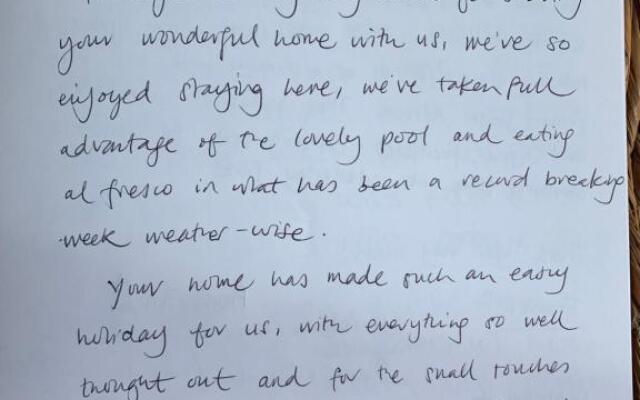 your wonderful home with us, we've so
enjoyed staying here, we've taken full
advantage of the lovely pool and eating
al fresco in what has been a record breaking
week weather-wise.
Your home has made such an easy
holiday for us, with everything so well
thought out and for the small touches